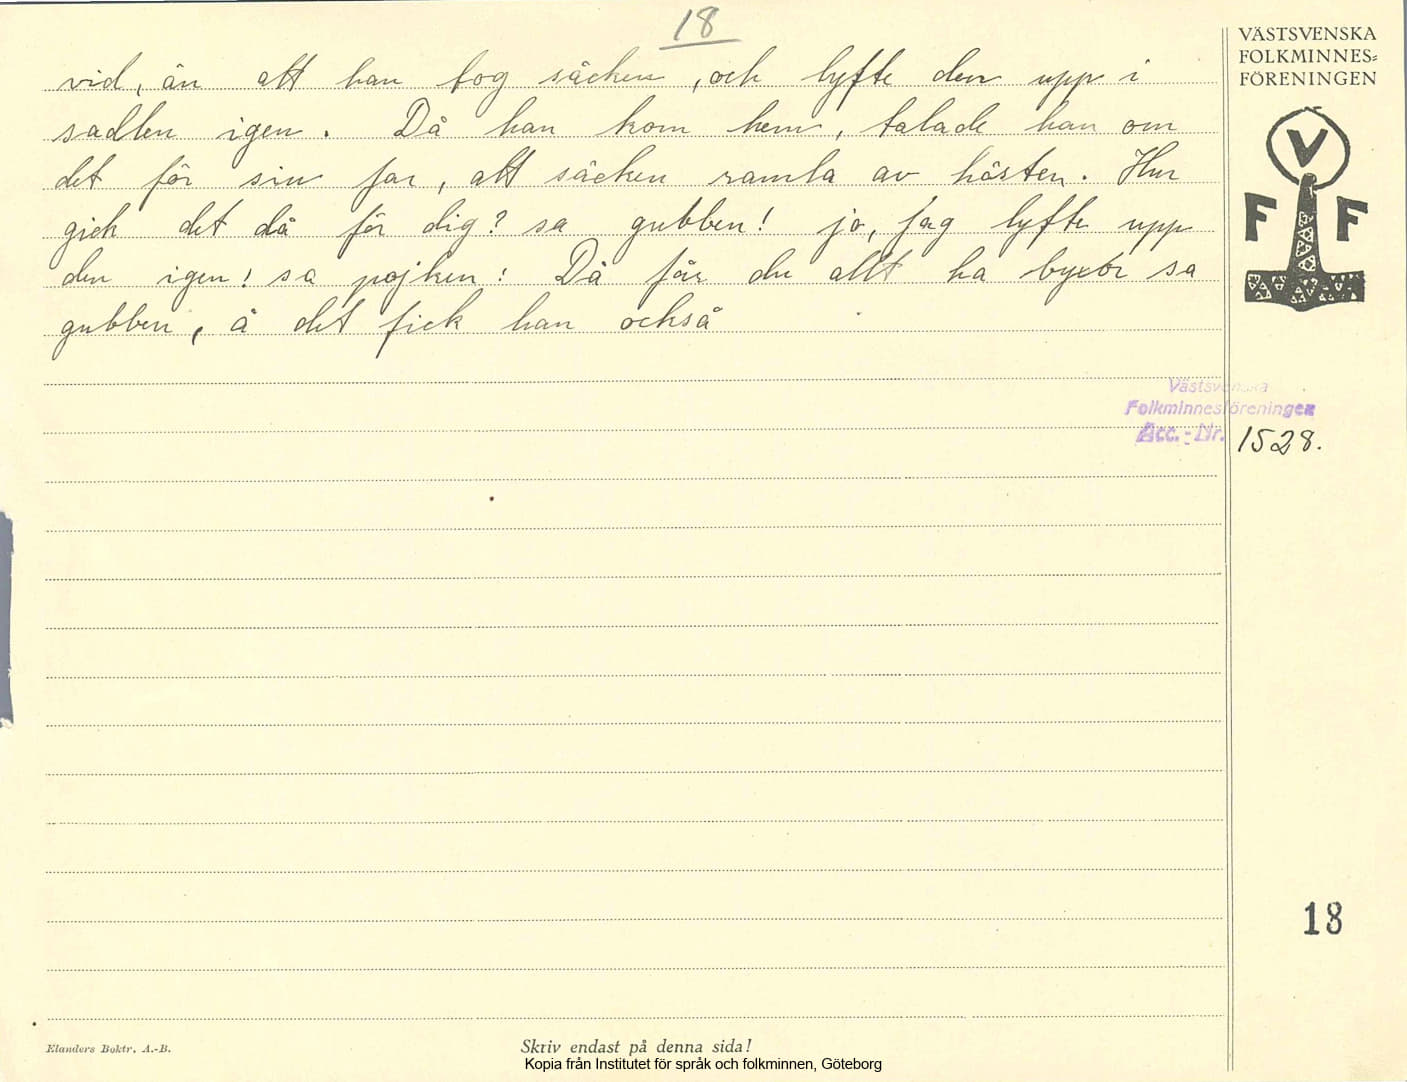 18
vid, än att han tog säcken, och lyfte den upp i
sadlen igen. Då han kom hem, talade han om
det för sin far, att säcken ramla av hästen. Hur
gick det då för dig? sa gubben! jo, jag lyfte upp
den igen! sa pojken: Då får du allt ha byxor sa
gubben, å det fick han också
VÄSTSVENSKA
FOLKMINNES=
FÖRENINGEN
V
F F
Västsvenska
Folkminnesföreningen
Acc. - Nr. 1528.
18
Elanders Boktr. A.-B.
Skriv endast på denna sida!
Kopia från Institutet för språk och folkminnen, Göteborg